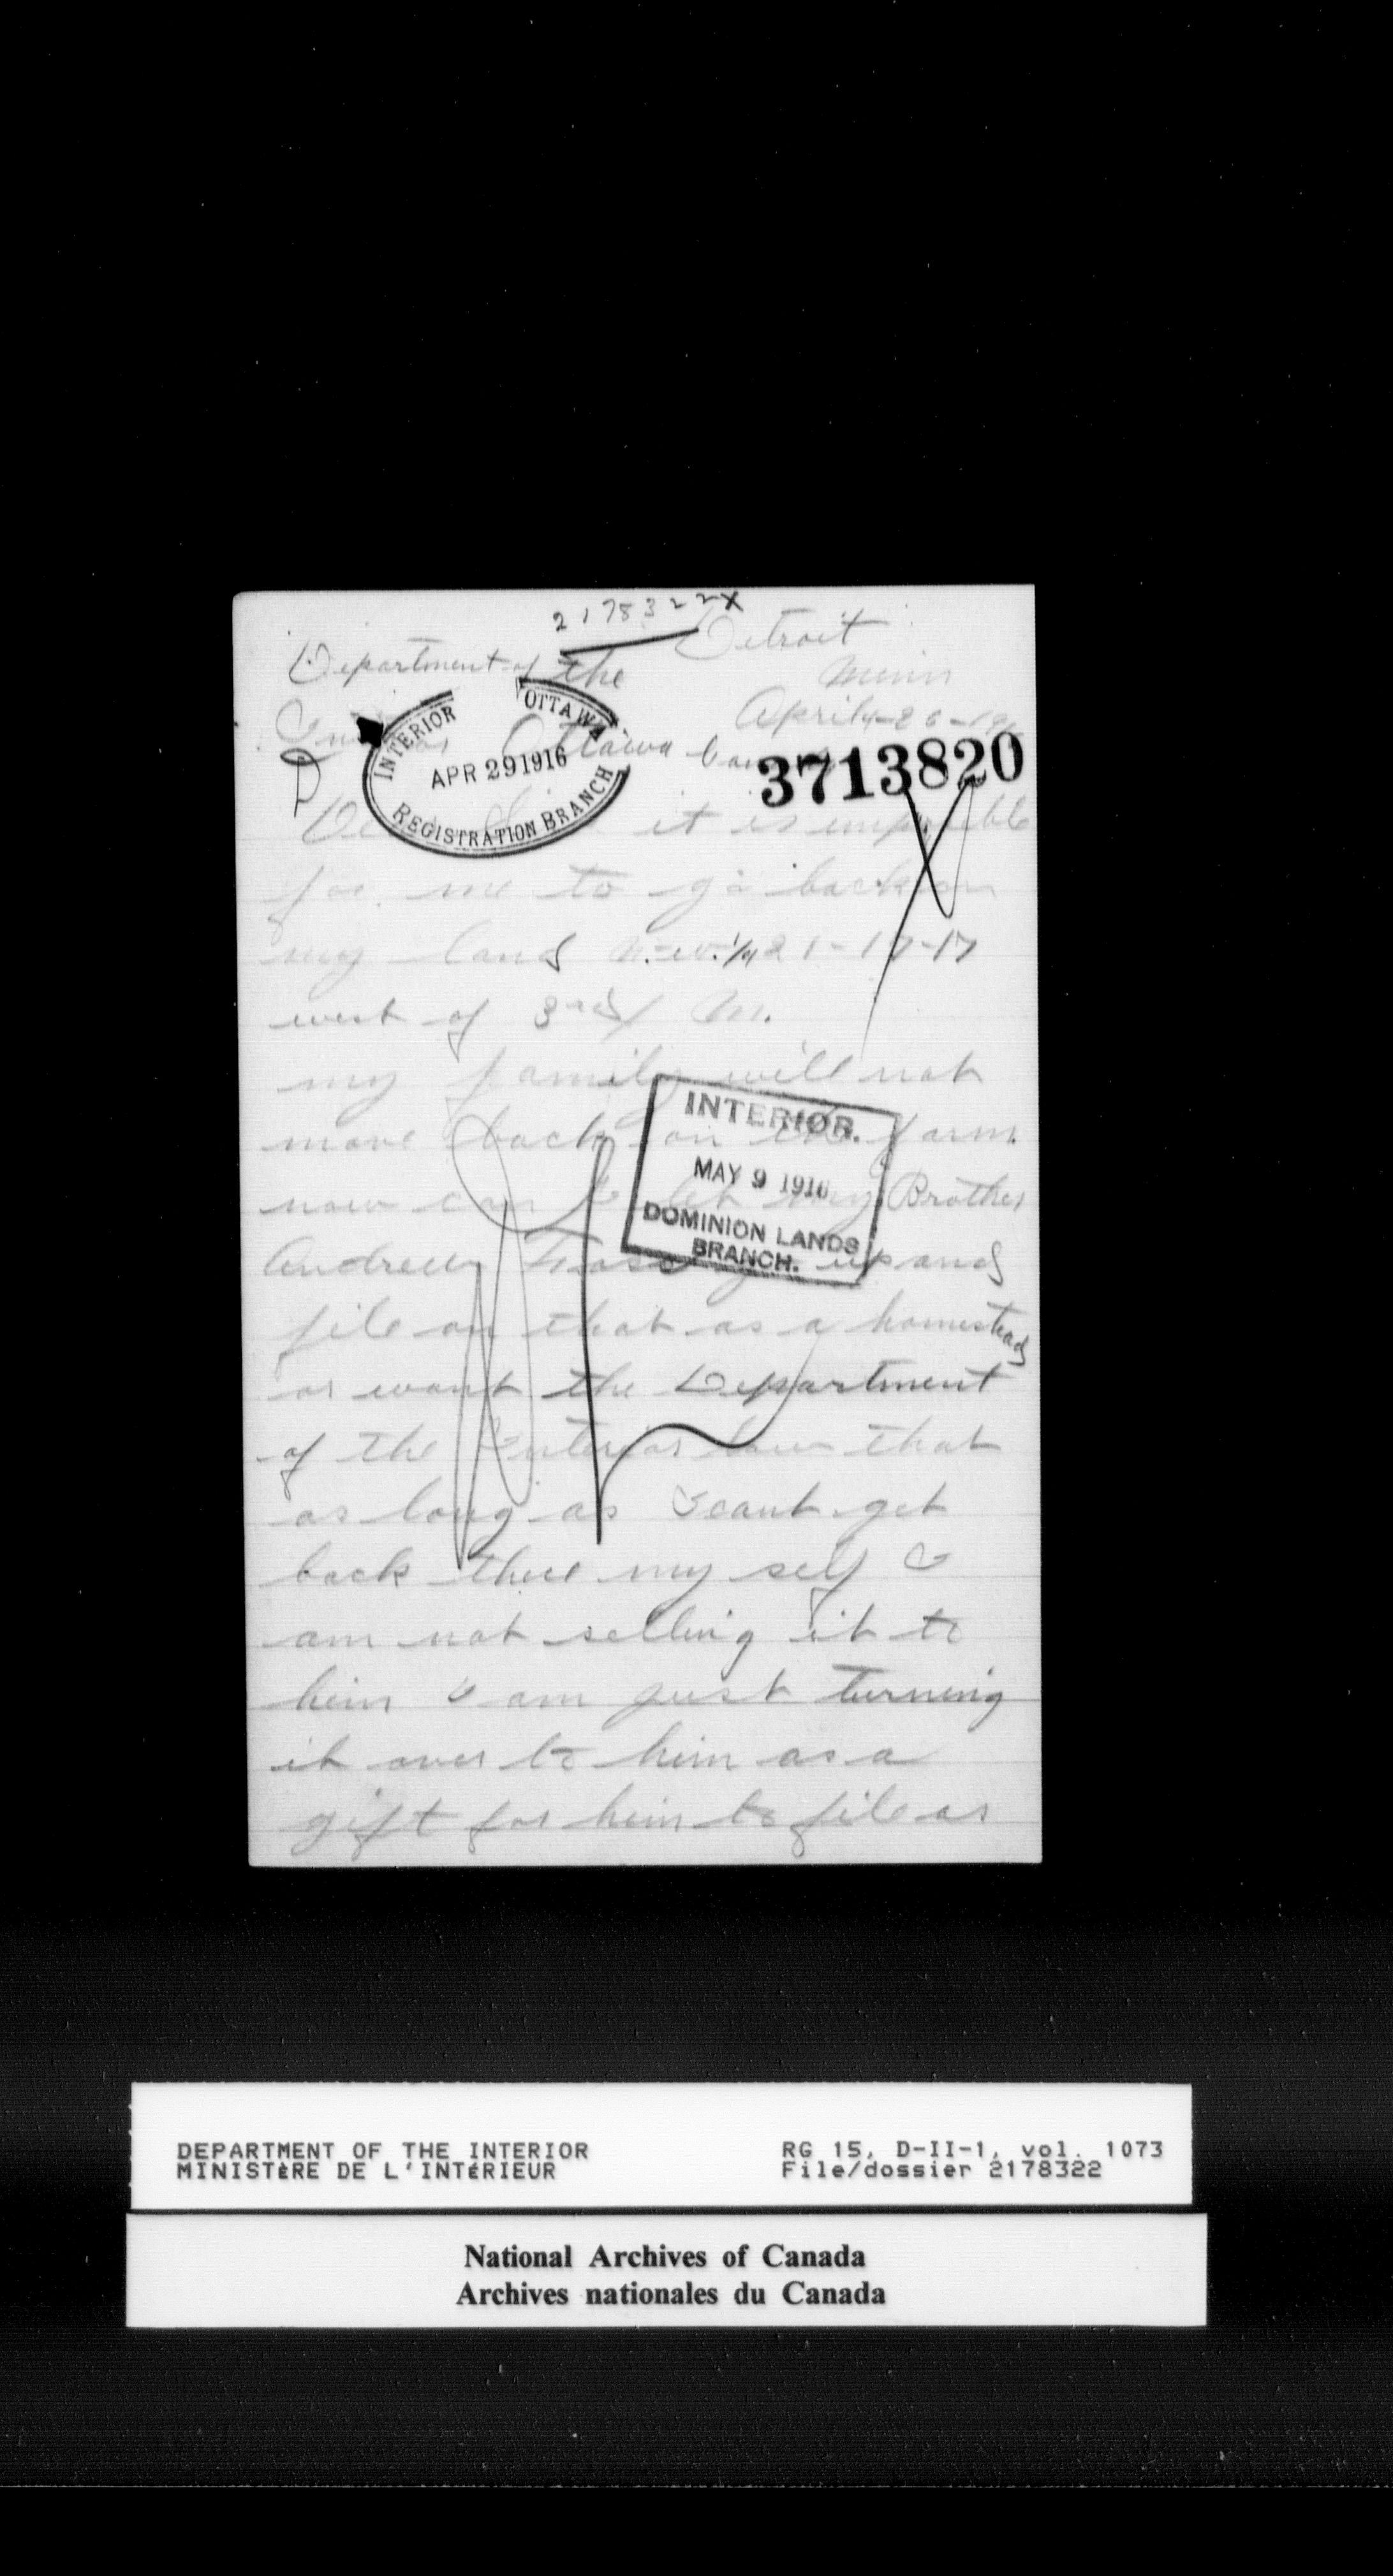 2178322 X
Detroit
Department of the
Minn
April-26-19
Ottawa
INTERIOR OTTAWA
APR 29 1916
REGISTRATION BRANCH
3713820
D
it is
for me to go back on
my land N.W. 1/4 21-17-17
west of 3rd M.
my family will not
move back on the farm.
now can I let my Brother
Andrew up and
file on that as a homestead
or want the Department
of the Interior law that
as long as I cant get
back there my self I
am not selling it to
him I am just turning
it over to him as a
gift for him to file as
INTERIOR.
MAY 9 1916
DOMINION LANDS
BRANCH.
DEPARTMENT OF THE INTERIOR
MINISTÈRE DE L'INTÉRIEUR
RG 15, D-II-1, vol. 1073
File/dossier 2178322
National Archives of Canada
Archives nationales du Canada